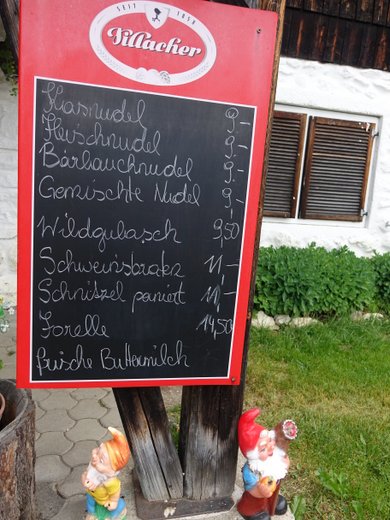 SEIT 1858
Villacher
Kasnudel 9,-
Fleischnudel 9,-
Bärlauchnudel 9,-
Gemischte Nudel 9,-
Wildgulasch 9,50
Schweinsbraten 11,-
Schnitzel paniert 11,-
Forelle 14,50
frische Buttermilch